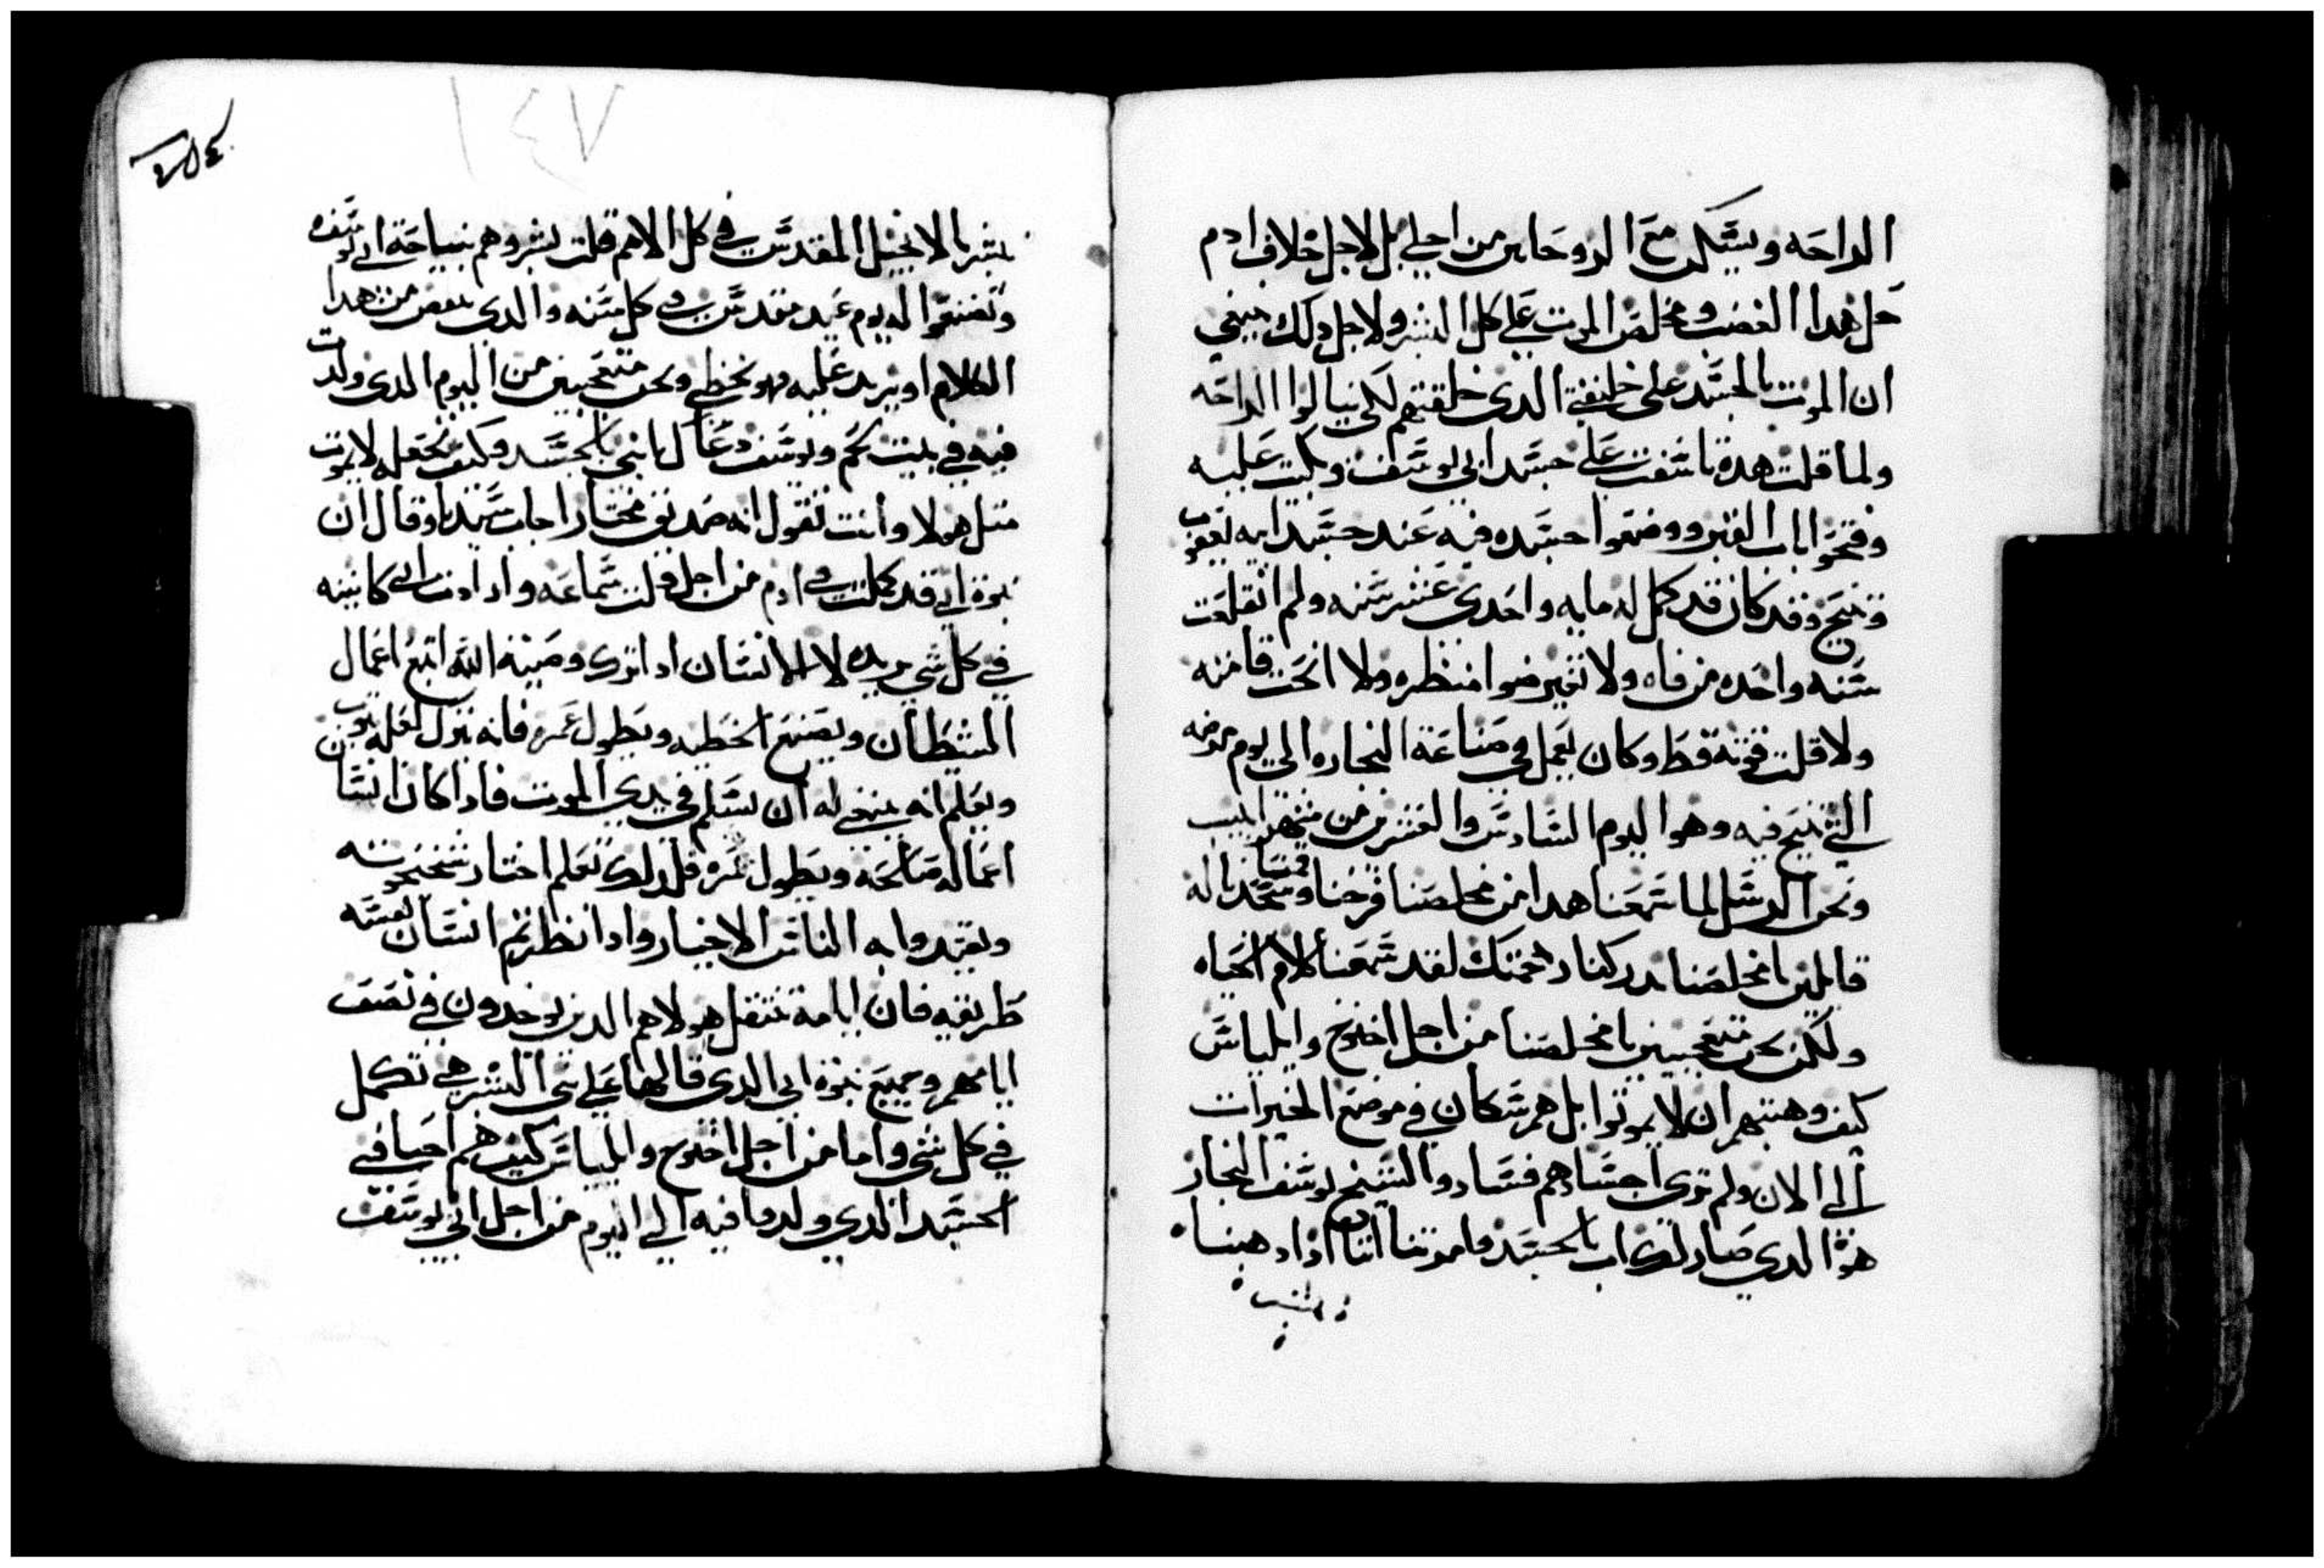 الراحه ويسكن مع الروحانين من اجلي بل لاجل خلاف ادم
حل هدا الغضب ومخلص الموت على كل البشر ولاجل دلك ينبغي
ان الموت بالجسد على خليقتي الدى خلقتهم لكي ينالوا الراحه
ولما قلت هده تاسفت على جسد ابي يوسف وبكيت عليه
وفتحوا باب القبر ووضعوا جسده فيه عند جسد ابيه يعقوب
وتنيح وقد كان قد كمل له مايه واحدى عشر سنه ولم انقلعت
سنه واحده من فاه ولا تغير ضوا منظره ولا انحت قامته
ولا قلت قوته قط وكان يعمل في صناعة النجاره الى يوم مرضه
التي تنيح فيه وهو اليوم السادس والعشرين من شهر ابيب
ونحن الرسل لما سمعنا هدا من مخلصنا فرحنا وقمنا سجدنا له
قايلين يا مخلصنا ادركنا رحمتك لقد سمعنا كلام الحياه
ولكن نحن متعجبين يا مخلصنا من اجل اخنوخ وايلياس
كيف وهبتهم ان لا يموتوا بل هم سكان في موضع الخيرات
الى الان ولم ترى اجسادهم فساد والشيخ يوسف النجار
هوا الدي صار لك اب بالجسد وامرتنا اننا ادا دهبنا
نبشر بالانجيل المقدس في كل الامم قلت بشروهم بنياحة ابي يوسف
وتصنعوا له يوم عيد مقدس في كل سنه والدي ينقص من هدا
الكلام او يزيد عليه فهو يخطي ونحن متعجبين من اليوم الدى ولدت
فيه في بيت لحم ويوسف دعاك يا ابني بالجسد وكيف تجعله لا يموت
متل هولا وانت تقول انه صديق مختار اجاب سيدنا وقال ان
نبوة ابي قد كملت في ادم من اجل قلت سماعه واراده ابي كاينه
في كل شي يريده لان الانسان ادا ترك وصية الله اتبع اعمال
الشيطان ويصنع الخطيه ويطول عمره فانه ينزل لعله يتوب
ويعلم انه ينبغي له ان يسلم في يدي الموت فادا كان انسان
اعماله صالحه ويطول عمره فلدلك تعلم اختار شيخوخته
ويقتدوا به الناس الاخيار وادا نظرتم انسان نفسه
طريقه فان ايامه تنتقل هولا هم الدين يوخدون في نصف
ايامهم وجميع نبوة ابي الدى قالها على بني البشر هي تكمل
في كل شي واما من اجل اخنوخ والياس كيف هم احيا في
الجسد الدي ولدوا فيه الى اليوم من اجل ابي يوسف